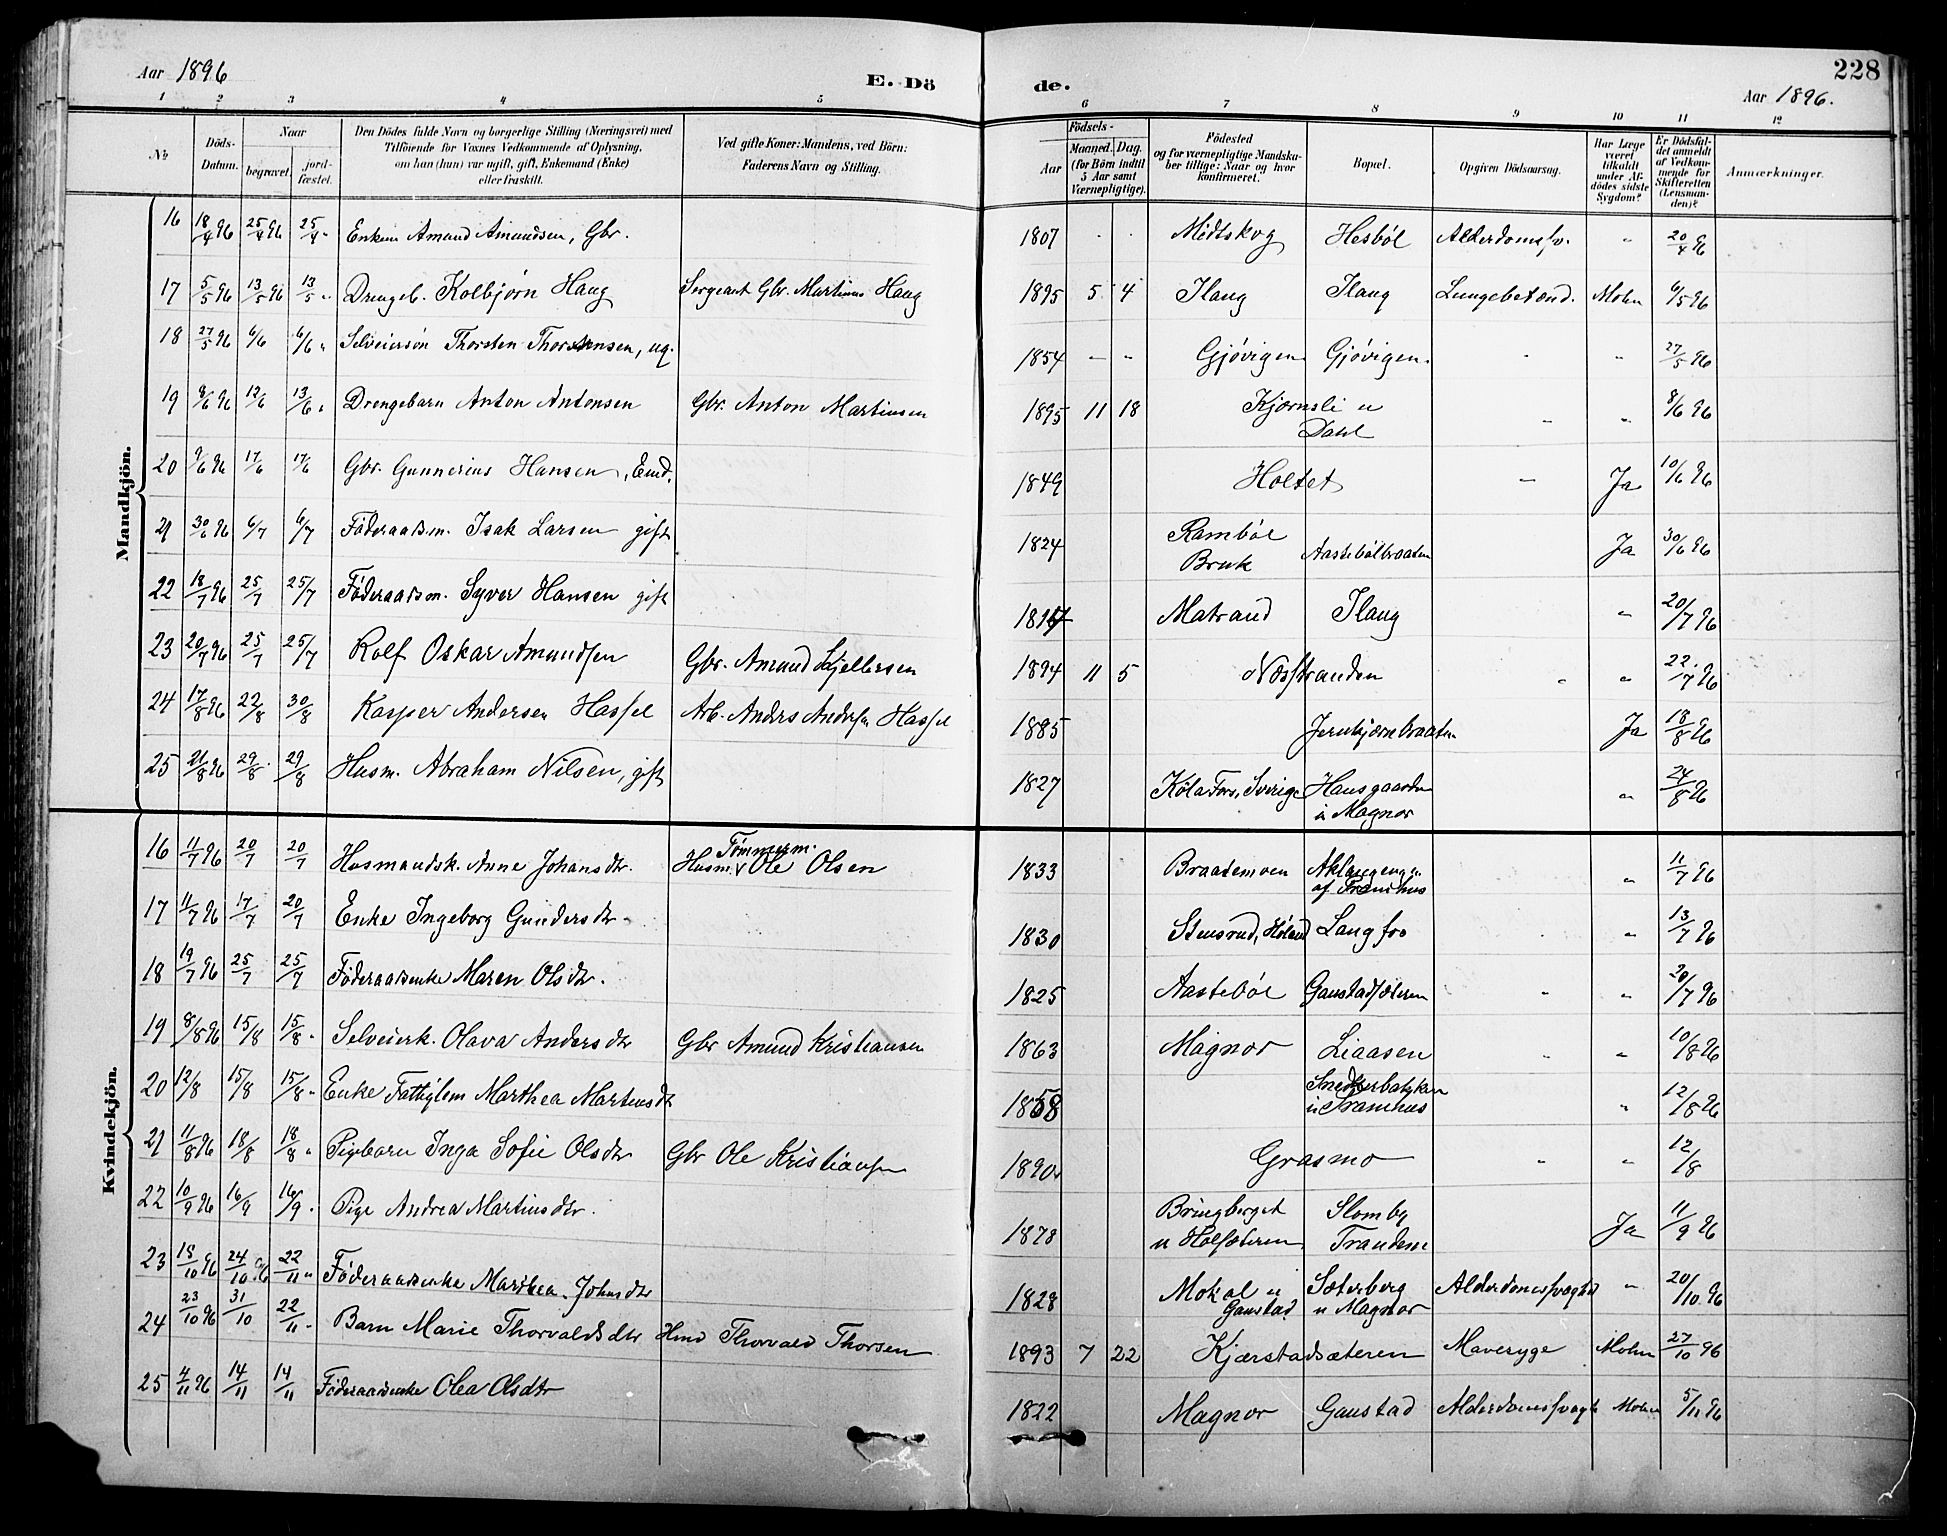 Aar 1896
E. Dö
de.
228
Aar 1896.
1 2 3 4 5 6 7 8 9 10 11 12
№
Döds-Datum.
Naar
begravet.
jord-fæstet.
Den Dödes fulde Navn og borgerlige Stilling (Næringsvei) med
Tilföiende for Voxnes Vedkommende af Oplysning,
om han (hun) var ugift, gift, Enkemand (Enke)
eller fraskilt.
Ved gifte Koner: Mandens, ved Börn:
Faderens Navn og Stilling.
Födsels-
Aar
Maaned. Dag.
(for Börn indtil
5 Aar samt
Værnepligtige).
Födested
og for værnepligtige Mandska-
ber tillige: Naar og hvor
konfirmeret.
Bopæl.
Opgiven Dödsaarsag.
Har Læge
været
tilkaldt
under Af-
dödes sidste
Sygdom?
Er Dödsfal-
det anmeldt
af Vedkom-
mende for
Skifteretten
(Lensman-
den)?
Anmærkninger.
Mandkjön.
16 18/4 96 25/4 96 25/4 " Enkem Amund Amundsen, Gbr. 1807 Midtskog Hesböl Alderdomssv. " 20/4 96
17 5/5 96 13/5 96 13/5 " Drengeb. Kolbjörn Haug Sergeant Gbr. Martinus Haug 1895 5 4 Ilaug Ilaug Lungebetænd. Mohn 6/5 96
18 27/5 96 6/6 6/6 " Selveiersön Thorsten Thorstensen, ug. 1854 " " Gjövigen Gjövigen " " 27/5 96
19 8/6 96 12/6 13/6 " Drengebarn Anton Antonsen Gbr. Anton Martinsen 1895 11 18 Kjærnsli u
Dahl " " 8/6 96
20 9/6 96 17/6 17/6 Gbr. Gunnerius Hansen, Emd. 1849 Holtet " Ja 10/6 96
21 30/6 96 6/7 6/7 Föderaadsm. Isak Larsen gift 1824 Ramböl
Bruk Aastebölbraaten Ja 30/6 96
22 18/7 96 25/7 25/7 Föderaadsm. Syver Hansen gift Matrand Ilaug " 20/7 96
23 20/7 96 25/7 25/7 Rolf Oskar Amundsen Gbr. Amund Kjellersen 1894 11 5 Næsstranden " " 22/7 96
24 17/8 96 22/8 30/8 Kasper Andersen Hassel Arb. Anders Andersen Hassel 1885 Jernkjærnbraaten Ja 18/8 96
25 21/8 96 29/8 29/8 Husm. Abraham Nilsen, gift 1827 Köla Fors, Sverige Hansgaarden
u Magnor " 24/8 96
Kvindekjön.
16 11/7 96 20/7 20/7 Husmandsk. Anne Johansdtr. Husm. Tömmerm. Ole Olsen 1833 Braatemoen " 11/7 96
17 11/7 96 17/7 20/7 Enke Ingeborg Gundersdtr 1830 Stensrud, Höland Langfos " 13/7 96
18 19/7 96 25/7 25/7 Föderaadsenke Maren Olsdtr. 1825 Aasteböl Gaustadsæteren " " 20/7 96
19 8/8 96 15/8 15/8 " Selveierk. Olava Andersdtr Gbr Amund Kristiansen 1863 Magnor Liaasen " " 10/8 96
20 12/8 15/8 15/8 " Enke Fattiglem Marthea Martinsdtr 1858 " 12/8 96
21 11/8 96 18/8 18/8 " Pigebarn Inga Sofie Olsdtr Gbr Ole Kristiansen 1890 Grasmo " " 12/8
22 10/9 96 16/9 16/9 " Pige Andrea Martinsdtr. 1878 Bringberget
u Holsæteren Slomby
Trandem Ja 11/9 96
23 15/10 96 24/10 96 22/11 " Föderaadsenke Marthea Johnsdtr 1828 Mokal u
Gaustad Sæterberg
u Magnor Alderdomssvaghed " 20/10 96
24 23/10 96 31/10 22/11 " Barn Marie Thorvaldsdtr Hmd Thorvald Thorsen 1893 7 22 Kjærstadsæteren Mavesyge Mohn 27/10 96
25 4/11 96 14/11 14/11 Föderaadsenke Olea Olsdtr 1822 Magnor Gaustad Alderdomssvagh Mohn 5/11 96